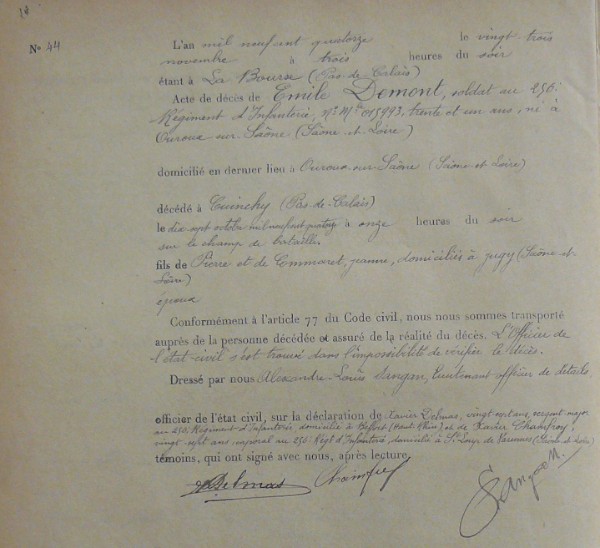 No 44
L'an mil neuf cent quatorze le vingt trois
novembre à trois heures du soir
étant à La Bourse (Pas-de-Calais)
Acte de décès de Emile Demont, soldat au 256e
Régiment d'Infanterie, No Mle 015993, trente et un ans, né à
Ouroux sur Saône (Saône et Loire)
domicilié en dernier lieu à Ouroux-sur-Saône (Saône et Loire)
décédé à Cuinchy (Pas-de-Calais)
le dix sept octobre mil neuf cent quatorze à onze heures du soir
sur le champ de bataille.
fils de Pierre et de Emmaret, jeanne, domiciliés à jugy (Saône et
Loire)
époux
Conformément à l'article 77 du Code civil, nous nous sommes transporté
auprès de la personne décédée et assuré de la réalité du décès. L'Officier de
l'état-civil s'est trouvé dans l'impossibilité de vérifier le décès.
Dressé par nous Alexandre Louis lieutenant officier de détails
officier de l'état civil, sur la déclaration de Xavier Delmas, vingt sept ans, sergent major
au 256e Régiment d'Infanterie domicilié à Belfort (Haut Rhin) et de Xavier Chamfroy,
vingt sept ans, caporal au 256 Régt d'Infanterie domicilié à St Loup de (Saône et Loire)
témoins, qui ont signé avec nous, après lecture.
Delmas